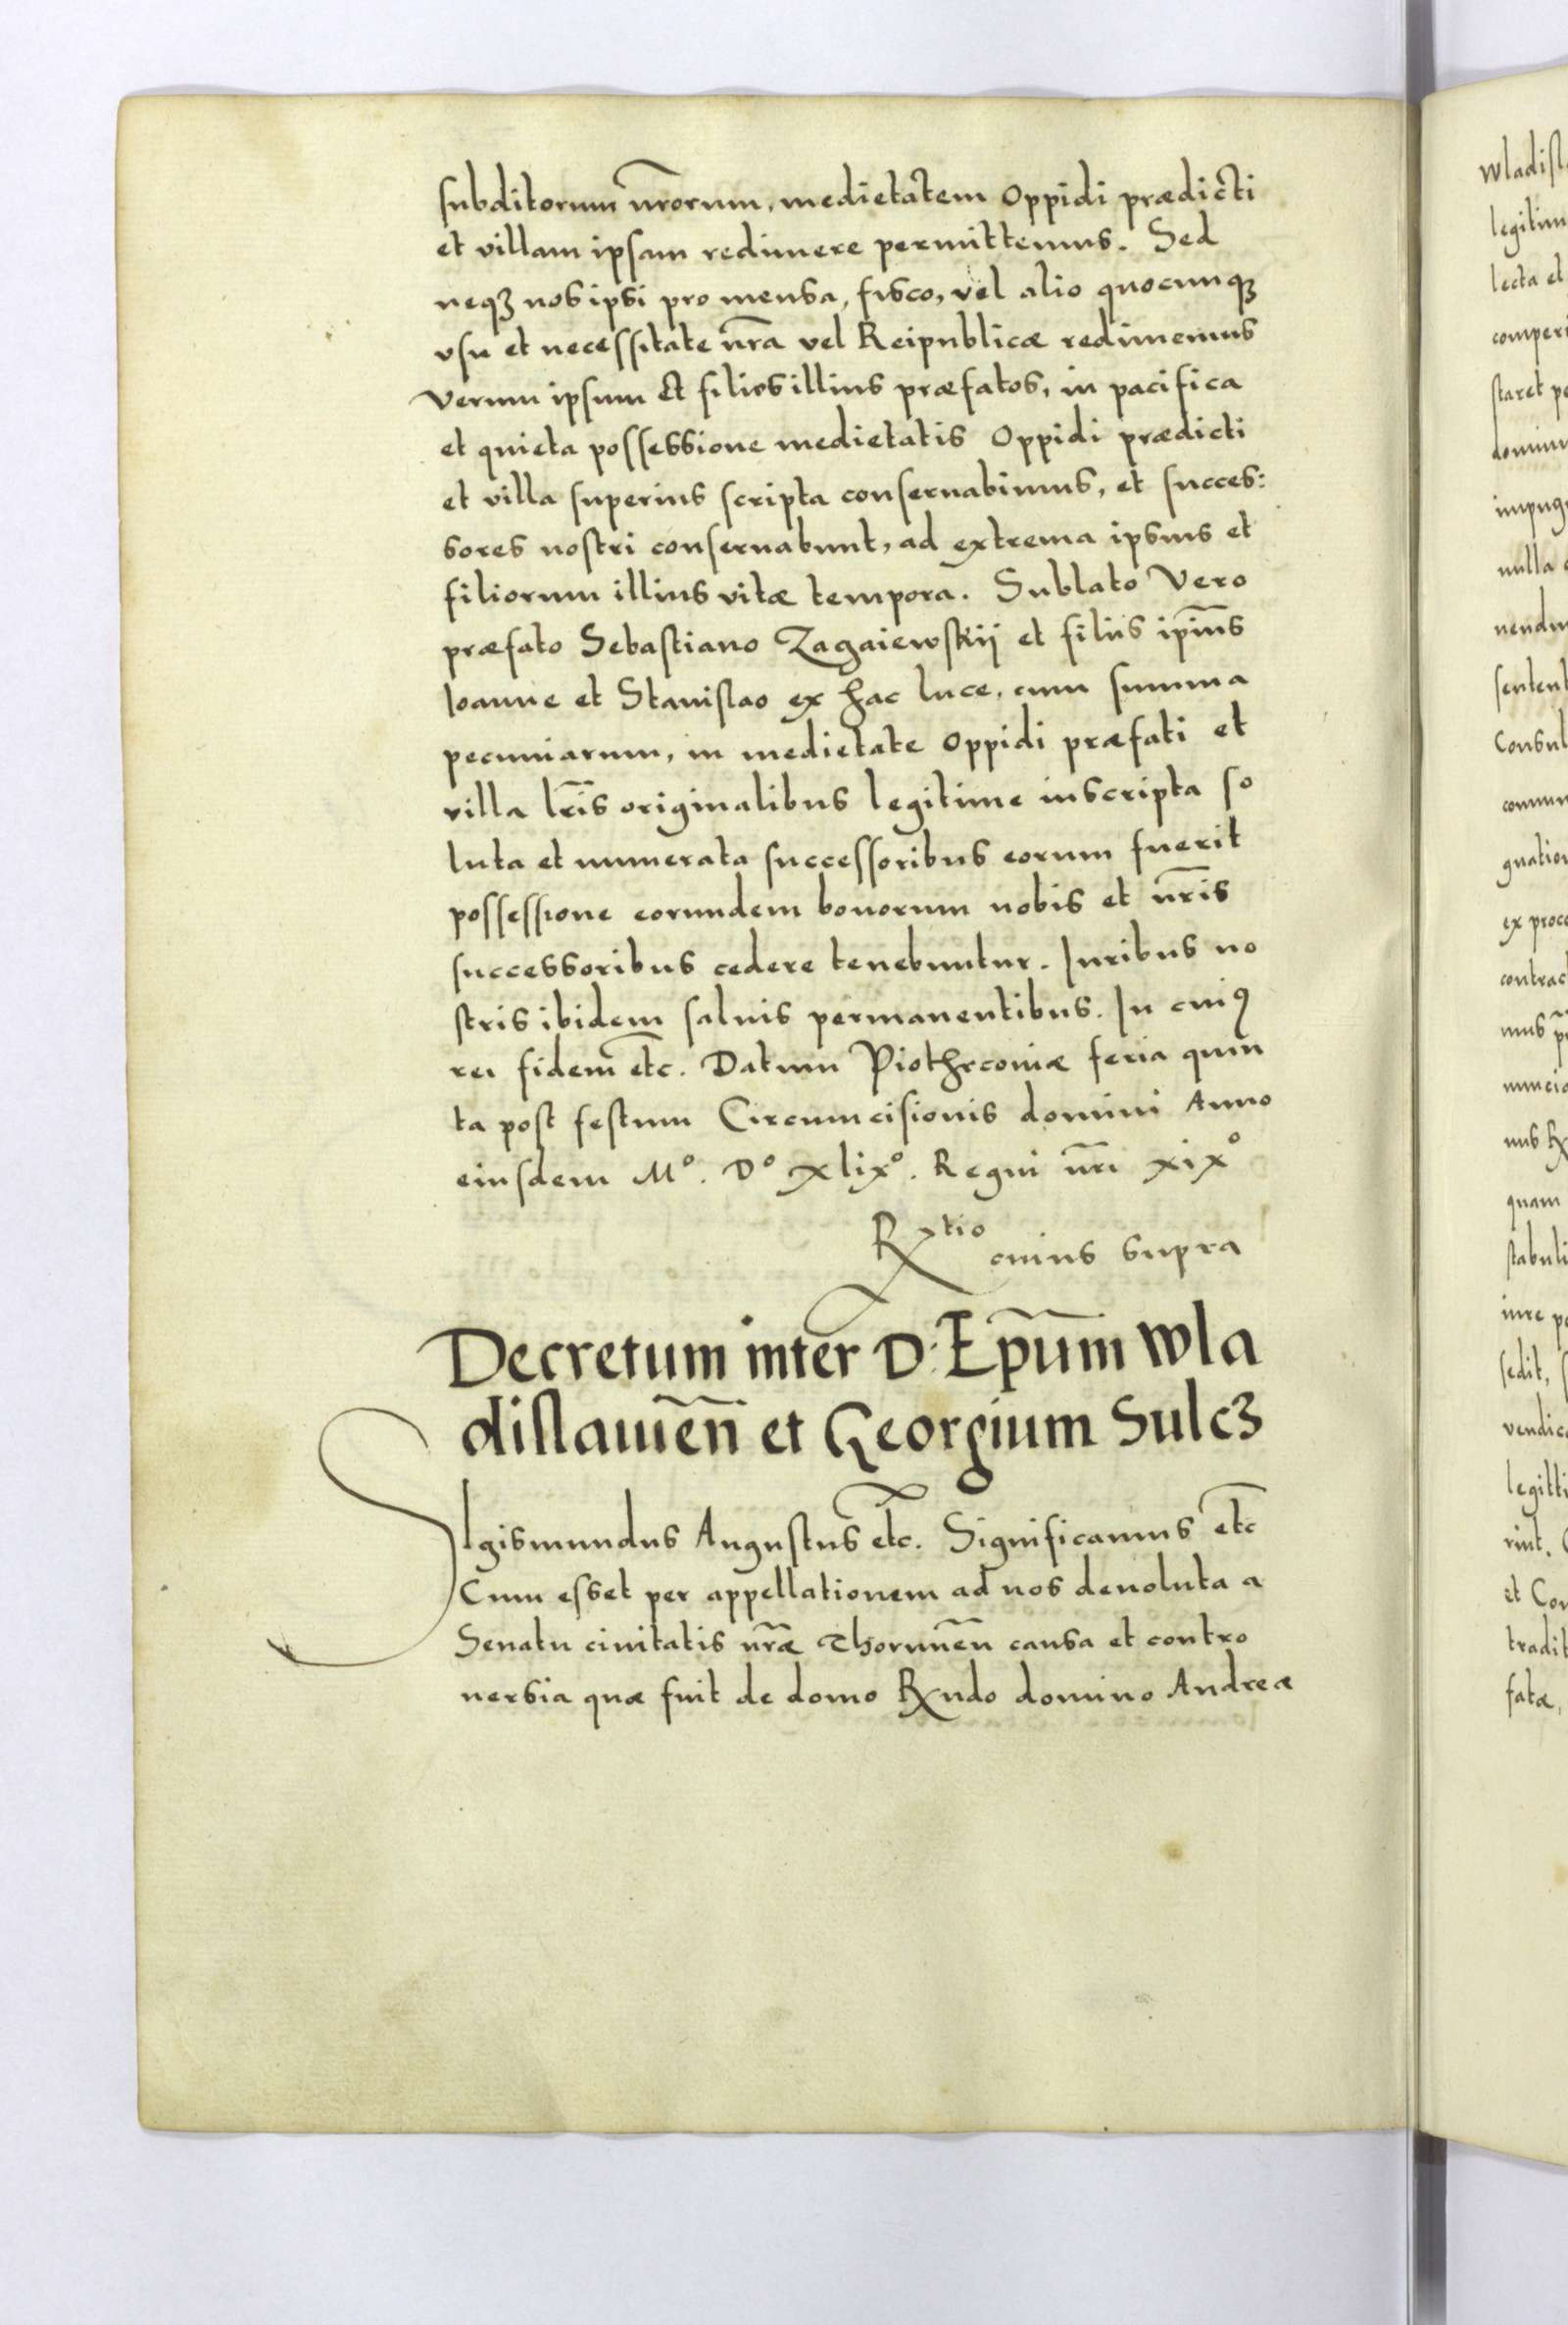 subditorum nr̄orum, medietatem oppidi prædicti
et villam ipsam redimere permittemus. Sed
neqꝫ nos ipsi pro mensa, fisco, vel alio quocunqꝫ
vsu et necessitate nr̄a vel Reipublicæ redimemus
Verum ipsum et filios illius præfatos, in pacifica
et quieta possessione medietatis oppidi prædicti
et villa superius scripta conseruabimus, et succes:
sores nostri conseruabunt, ad extrema ipsius et
filiorum illius vitæ tempora. Sublato Vero
præfato Sebastiano Zagaiewskij et filiis ip̄ius
Ioanne et Stanislao ex hac luce, cum summa
pecuniarum, in medietate oppidi præfati et
villa lr̄is originalibus legitime inscripta so
luta et numerata successoribus eorum fuerit
possessione eorundem bonorum nobis et nr̄is
successoribus cedere tenebuntur. Iuribus no
stris ibidem saluis permanentibus. In cuiꝰ
rei fidem etc̄. Datum Piothrcouiæ feria quin
ta post festum Circumcisionis domini Anno
eiusdem Mº. Dº xlixº. Regni nr̄i xixº
Rtio cuius supra
Decretum inter D: Ep̄um Wla
dislauien̄ et Georgium Sulcꝫ
SIgismundus Augustus etc̄. Significamus etc̄
Cum esset per appellationem ad nos deuoluta a
Senatu ciuitatis nr̄æ Thorunen̄ causa et contro
uersia quæ fuit de domo Rndo domino Andreæ
wladisl
legitim
lecta et
comperi
staret pe
domini
impug
nulla
nendu
sentent
Consul
commun
gnation
ex proce
contrac
mus
nuncia
quam
stabuli
iure po
sedit,
vendic
legitti
rint.
et Con
tradit
fatæ,